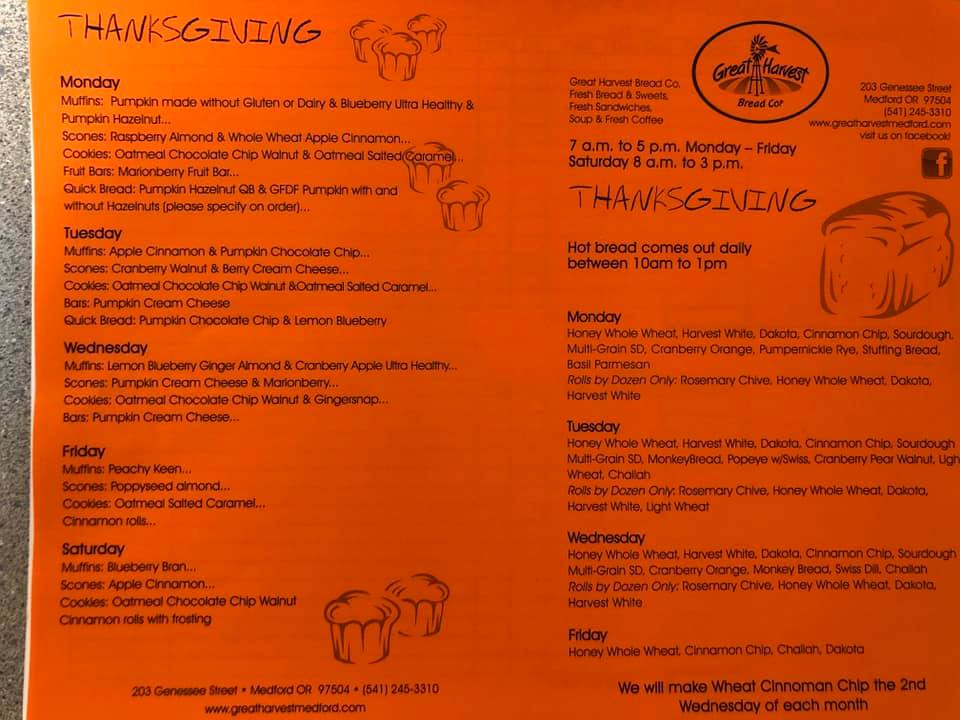 THANKSGIVING
Monday
Muffins: Pumpkin made without Gluten or Dairy & Blueberry Ultra Healthy &
Pumpkin Hazelnut...
Scones: Raspberry Almond & Whole Wheat Apple Cinnamon...
Cookies: Oatmeal Chocolate Chip Walnut & Oatmeal Salted Caramel...
Fruit Bars: Marionberry Fruit Bar...
Quick Bread: Pumpkin Hazelnut QB & GFDF Pumpkin with and
without Hazelnuts (please specify on order)...
Tuesday
Muffins: Apple Cinnamon & Pumpkin Chocolate Chip...
Scones: Cranberry Walnut & Berry Cream Cheese...
Cookies: Oatmeal Chocolate Chip Walnut &Oatmeal Salted Caramel...
Bars: Pumpkin Cream Cheese
Quick Bread: Pumpkin Chocolate Chip & Lemon Blueberry
Wednesday
Muffins: Lemon Blueberry Ginger Almond & Cranberry Apple Ultra Healthy...
Scones: Pumpkin Cream Cheese & Marionberry...
Cookies: Oatmeal Chocolate Chip Walnut & Gingersnap...
Bars: Pumpkin Cream Cheese...
Friday
Muffins: Peachy Keen...
Scones: Poppyseed almond...
Cookies: Oatmeal Salted Caramel...
Cinnamon rolls...
Saturday
Muffins: Blueberry Bran...
Scones: Apple Cinnamon...
Cookies: Oatmeal Chocolate Chip Walnut
Cinnamon rolls with frosting
203 Genessee Street • Medford OR 97504 • (541) 245-3310
www.greatharvestmedford.com
Great Harvest Bread Co.
Fresh Bread & Sweets,
Fresh Sandwiches,
Soup & Fresh Coffee
Great Harvest
Bread Co.
203 Genessee Street
Medford OR 97504
(541) 245-3310
www.greatharvestmedford.com
visit us on facebook!
f
7 a.m. to 5 p.m. Monday – Friday
Saturday 8 a.m. to 3 p.m.
THANKSGIVING
Hot bread comes out daily
between 10am to 1pm
Monday
Honey Whole Wheat, Harvest White, Dakota, Cinnamon Chip, Sourdough,
Multi-Grain SD, Cranberry Orange, Pumpernickle Rye, Stuffing Bread,
Basil Parmesan
Rolls by Dozen Only: Rosemary Chive, Honey Whole Wheat, Dakota,
Harvest White
Tuesday
Honey Whole Wheat, Harvest White, Dakota, Cinnamon Chip, Sourdough
Multi-Grain SD, MonkeyBread, Popeye w/Swiss, Cranberry Pear Walnut, Ligh
Wheat, Challah
Rolls by Dozen Only: Rosemary Chive, Honey Whole Wheat, Dakota,
Harvest White, Light Wheat
Wednesday
Honey Whole Wheat, Harvest White, Dakota, Cinnamon Chip, Sourdough
Multi-Grain SD, Cranberry Orange, Monkey Bread, Swiss Dill, Challah
Rolls by Dozen Only: Rosemary Chive, Honey Whole Wheat, Dakota,
Harvest White
Friday
Honey Whole Wheat, Cinnamon Chip, Challah, Dakota
We will make Wheat Cinnoman Chip the 2nd
Wednesday of each month